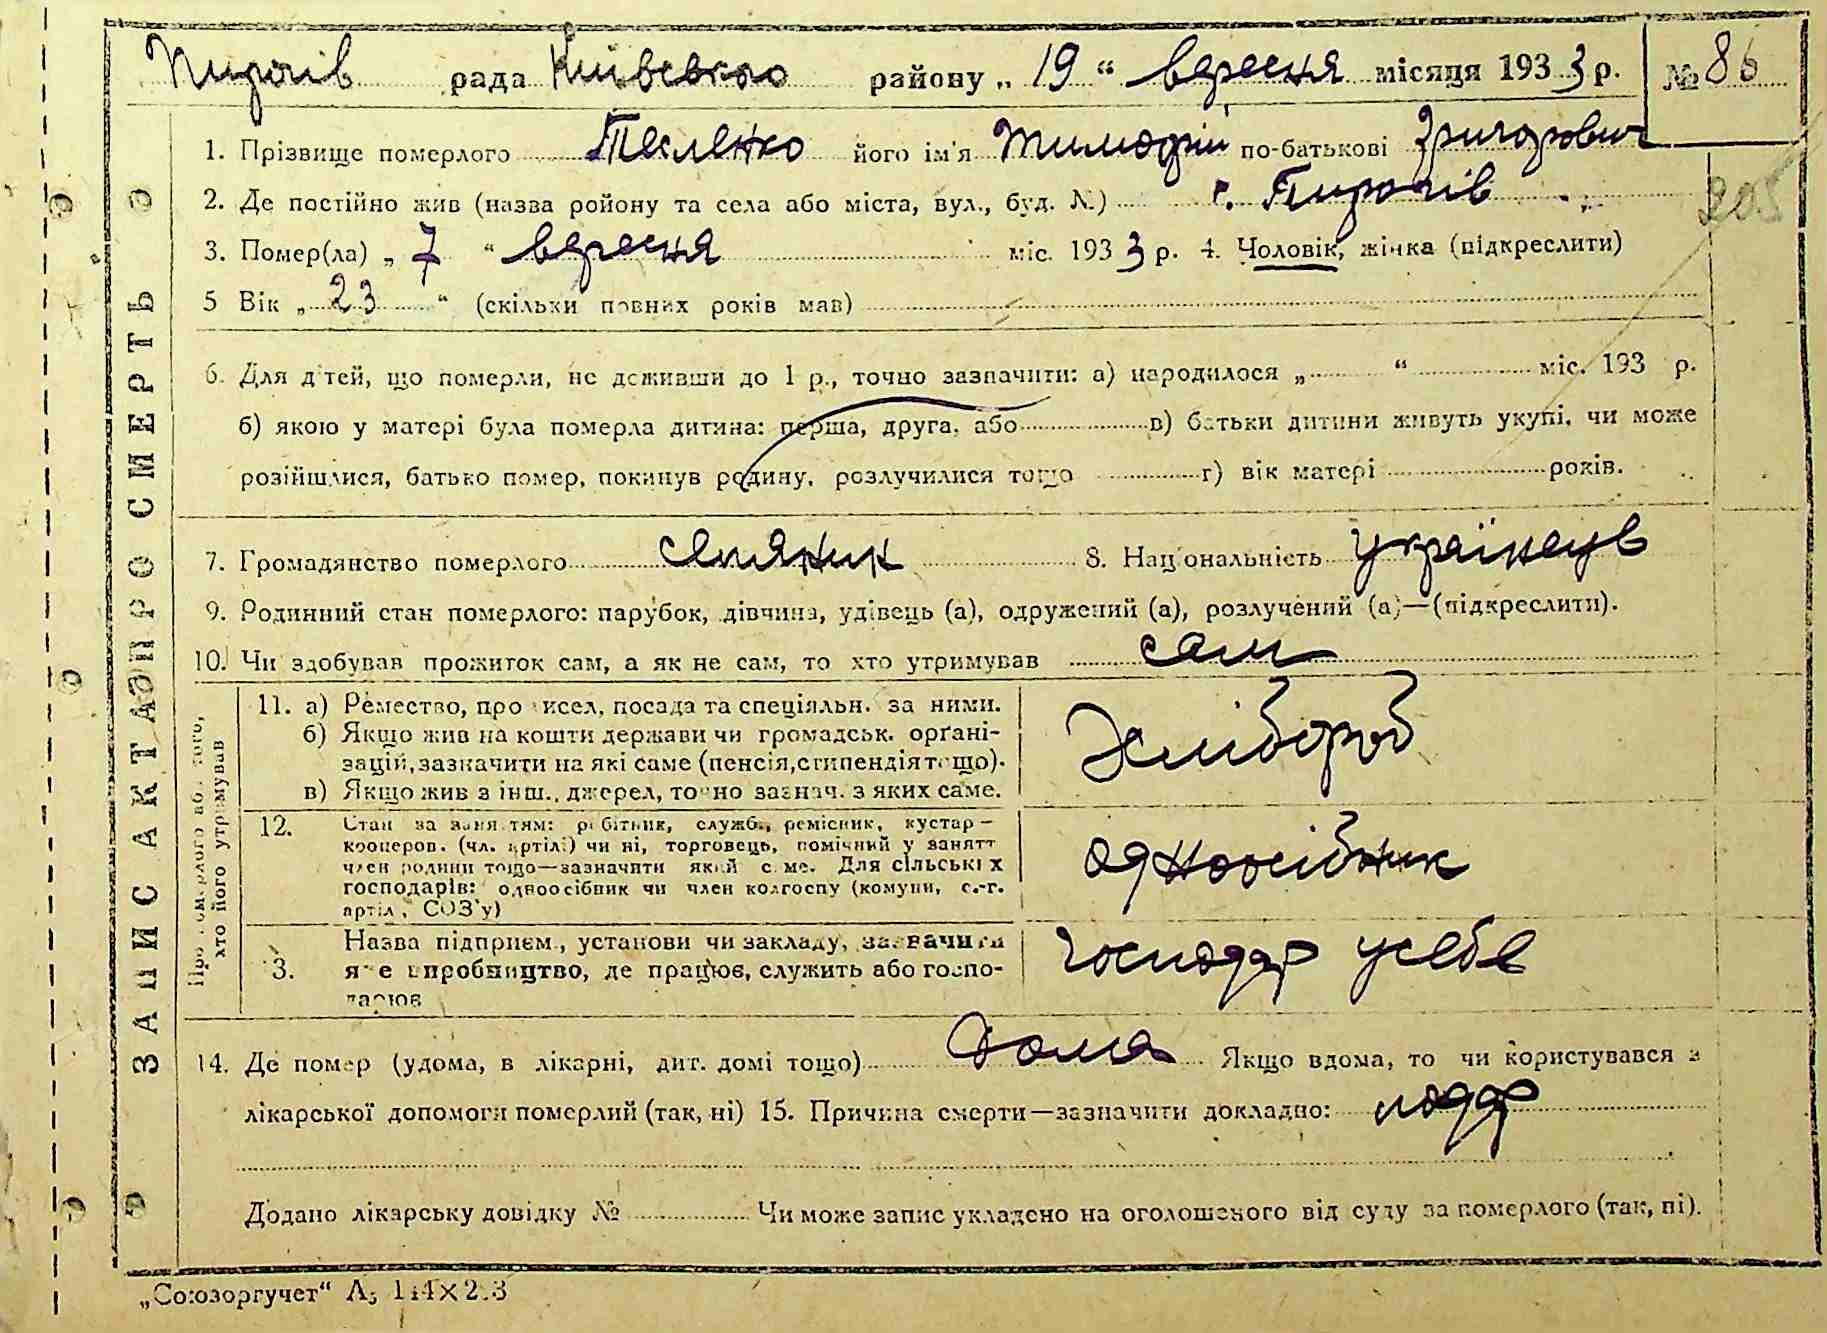 Пирогів рада Київського району „ 19 “ вересня місяця 1933 р. № 86
1. Прізвище померлого Теленко його ім'я Тимофій по-батькові Григорович
2. Де постійно жив (назва ройону та села або міста, вул., буд. №) с. Пирогів
205
3. Помер(ла) „ 7 “ вересня міс. 1933 р. 4. Чоловік, жінка (підкреслити)
5 Вік „ 23 “ (скільки повних років мав)
6. Для дітей, що померли, не доживши до 1 р., точно зазначити: а) народилося „ “ міс. 193 р.
б) якою у матері була померла дитина: перша, друга, або в) батьки дитини живуть укупі, чи може
розійшлися, батько помер, покинув родину, розлучилися тощо г) вік матері років.
7. Громадянство померлого селяник 8. Національність українець
9. Родинний стан померлого: парубок, дівчина, удівець (а), одружений (а), розлучений (а)—(підкреслити).
10. Чи здобував прожиток сам, а як не сам, то хто утримував сам
Про померлого або того, хто його утримував
11. а) Ремество, промисел, посада та спеціяльн. за ними.
б) Якщо жив на кошти держави чи громадськ. орґані-
зацій, зазначити на які саме (пенсія, стипендія тощо).
в) Якщо жив з інш., джерел, точно зазнач. з яких саме.
Хлібороб
12. Стан за заняттям: робітник, службв., ремісник, кустар—
кооперов. (чл. артілі) чи ні, торговець, помічний у занятт
член родини тощо—зазначити який саме. Для сільських
господарів: одноосібник чи член колгоспу (комуни, с.-г.
артіл., СОЗ'у)
одноосібник
13. Назва підприєм., установи чи закладу, зазначити
яке виробництво, де працює, служить або госпо-
дарює
господар усебе
14. Де помер (удома, в лікарні, дит. домі тощо) дома Якщо вдома, то чи користувався з
лікарської допомоги померлий (так, ні) 15. Причина смерти—зазначити докладно:
Додано лікарську довідку № Чи може запис укладено на оголошеного від суду за померлого (так, ні).
ЗАПИС АКТА ПРО СМЕРТЬ
„Союзоргучет“